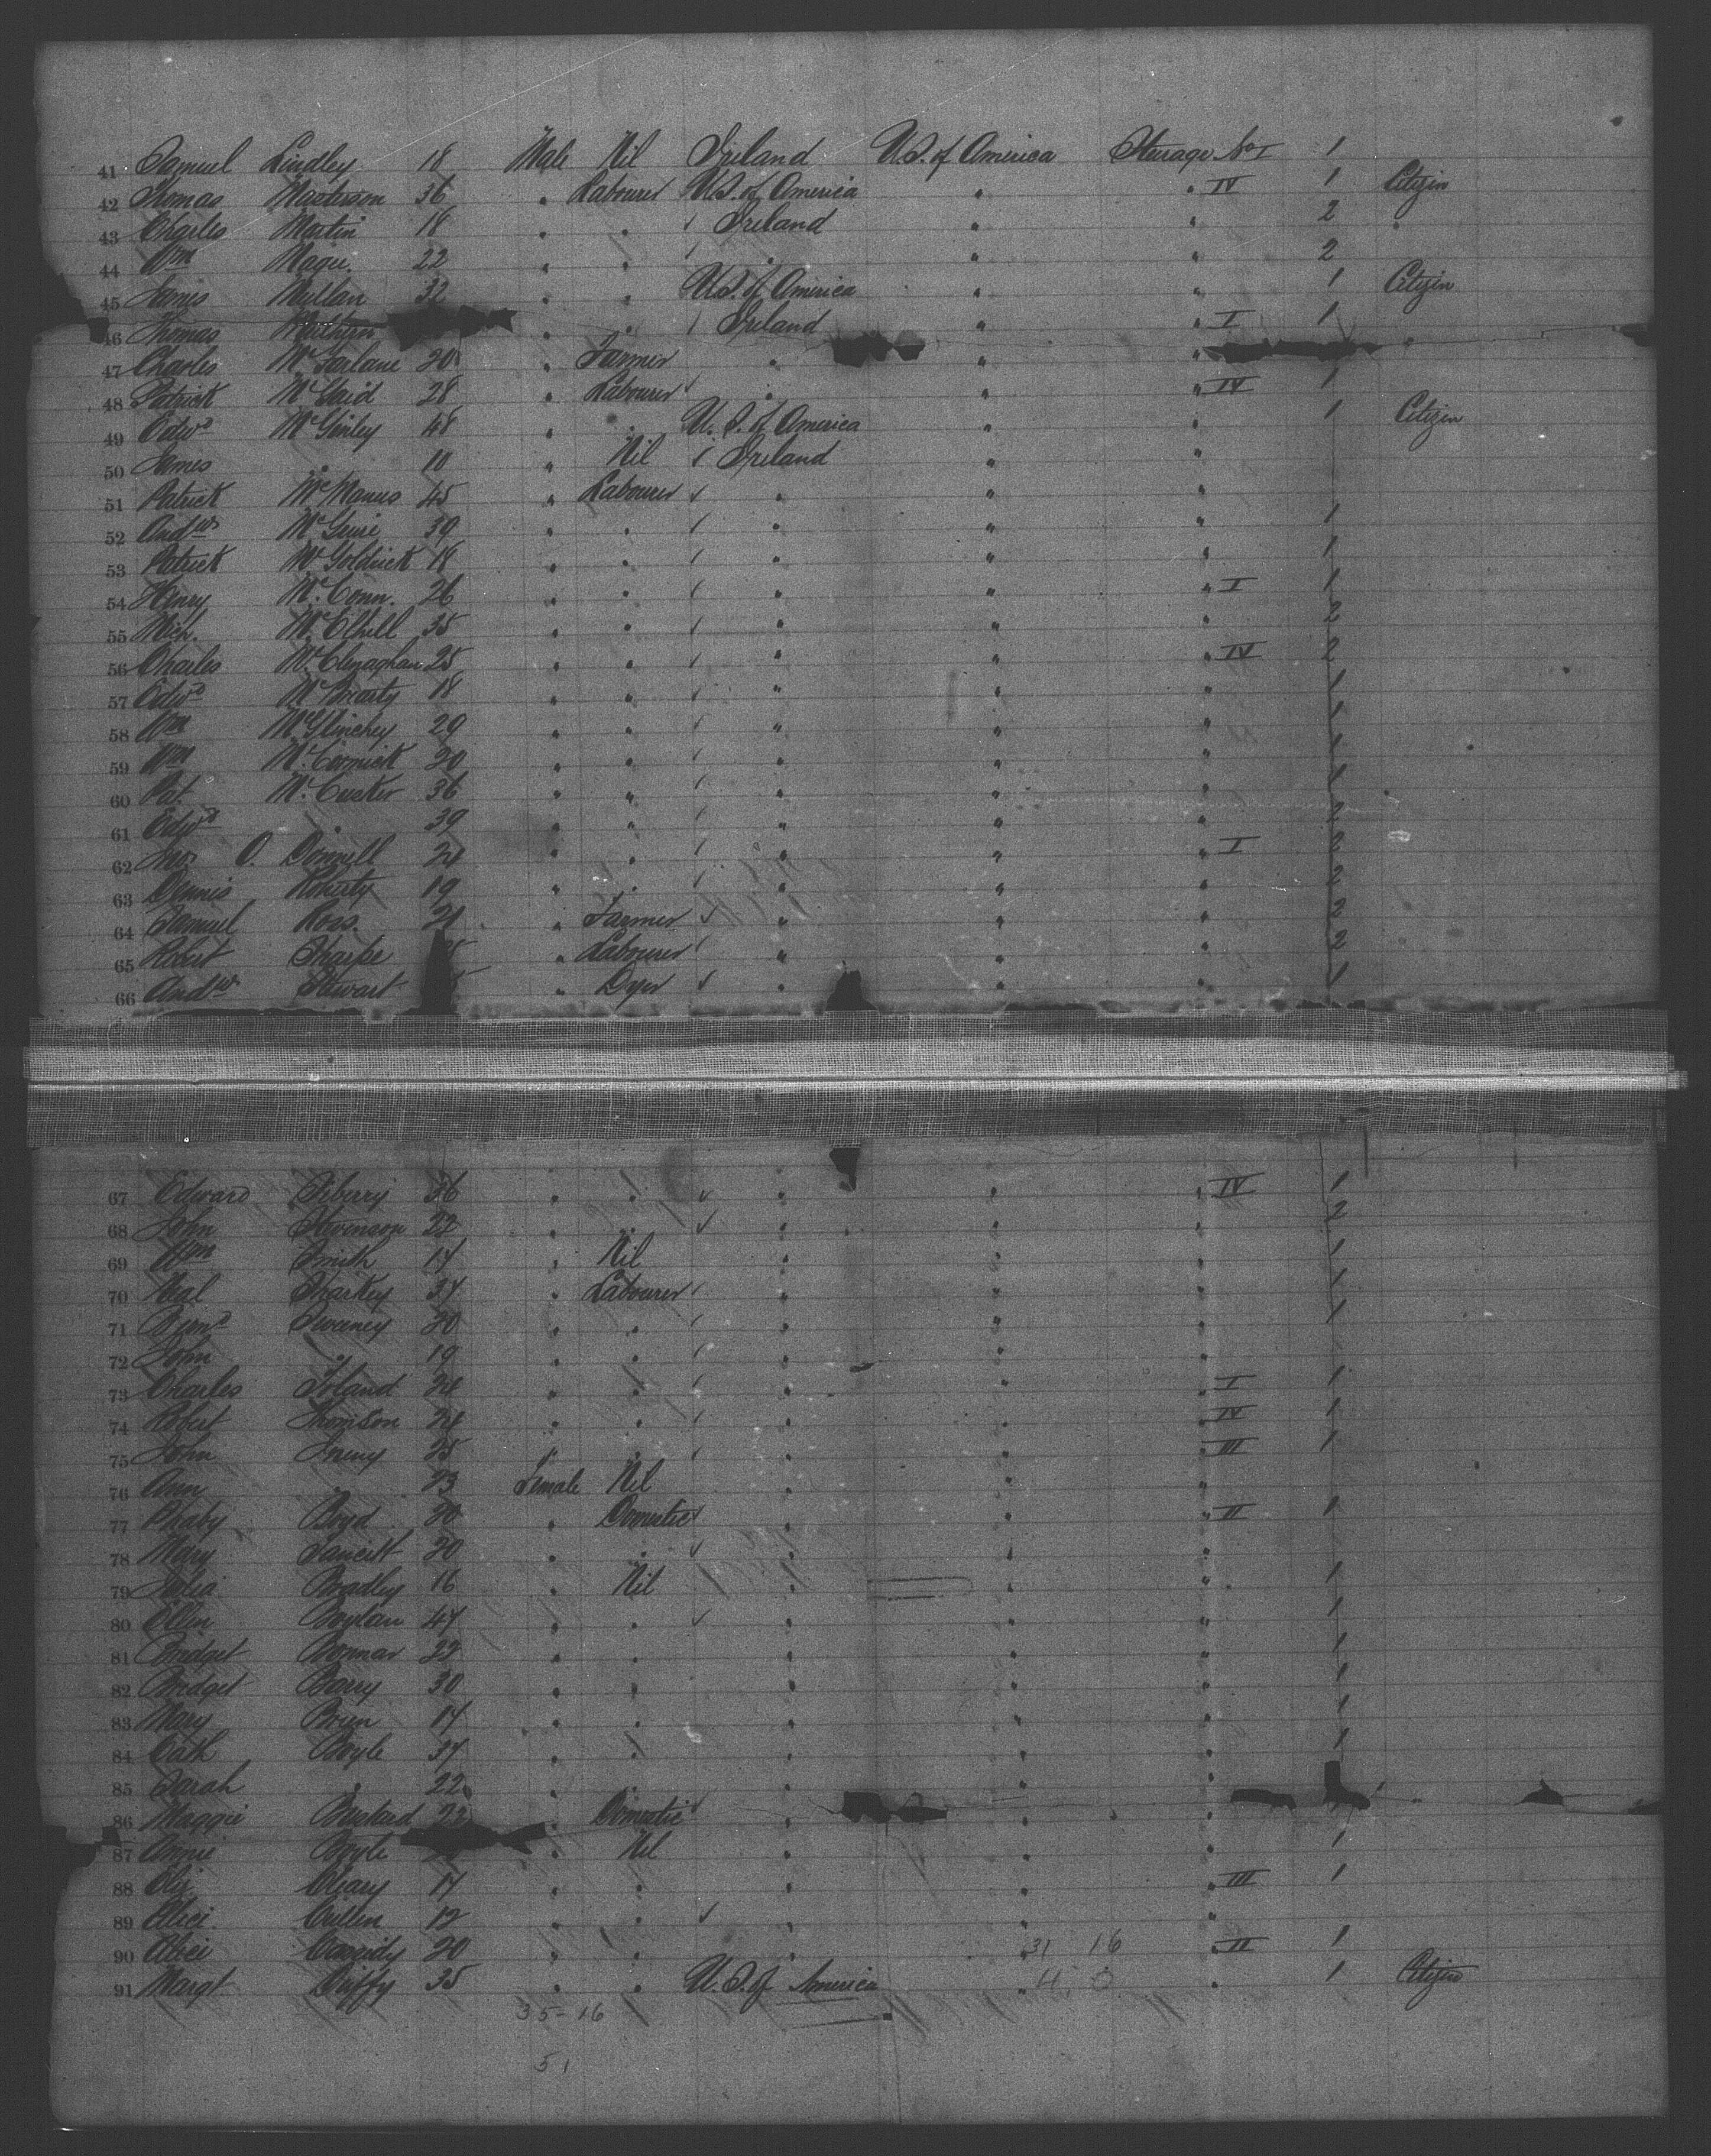 41 Samuel Lindley 18 Male Nil Ireland U.S. of America Steerage No I 1
42 Thomas Masterson 36 " Labourer U.S. of America " " IV 1 Citizen
43 Charles Martin 18 " " Ireland " " 2
44 Wm Magee. 22 " " " " " 2
45 James Mullan 32 " " U.S. of America " " 1 Citizen
46 Thomas " " Ireland " " I 1
47 Charles McFarlane 20 " Farmer " " "
48 Patrick McDaid 28 " Labourer " " " IV 1
49 Edwd McGinley 48 " " U.S. of America " " 1 Citizen
50 James " 10 " Nil Ireland " "
51 Patrick McManus 45 " Labourer " " "
52 Andw 39 " " " " " 1
53 Patrick McGoldrick 18 " " " " " 1
54 Henry McConn. 26 " " " " " I 1
55 Mich. McElhill 35 " " " " " 2
56 Charles McClenaghan 25 " " " " " IV 2
57 Edwd McBrearty 18 " " " " " 1
58 Wm McGlinchey 29 " " " " " 1
59 Wm McCormick 20 " " " " " 1
60 Pat. McCusker 36 " " " " " 1
61 Edwd " 39 " " " " " 2
62 Jno. O. Donnell 24 " " " " " I 2
63 Dennis Roherty 19 " " " " " 2
64 Samuel Ross. 21 " Farmer " " " 2
65 Robert Sharpe " Labourer " " " 2
66 Andw Stewart " Dyer " " " 1
67 Edward 36 " " " " " IV 1
68 John Stevenson 22 " " " " 2
69 Wm Smith 17 " Nil " " " 1
70 Neal Sharkey 37 " Labourer " " " 1
71 Sweeney 30 " " " " " 1
72 John " 19 " " " " "
73 Charles Toland 24 " " " " " I 1
74 Robert Thomson 24 " " " " " IV 1
75 John 25 " " " " " III 1
76 Ann " 23 Female Nil " " "
77 Phaby Boyd 20 " Domestic " " " II 1
78 Mary 20 " " " " "
79 Julia Bradley 16 " Nil " " " 1
80 Ellen Boylan 47 " " " " " 1
81 Bridget Bonnar 22 " " " " " 1
82 Bridget Barry 30 " " " " " 1
83 Mary 17 " " " " " 1
84 Cath Boyle 37 " " " " " 1
85 Sarah " 22 " " " "
86 Maggie 22 Domestic " " "
87 Annie Boyle " Nil " " " 1
88 Eliz Cleary 17 " " " " " III 1
89 Alice. Cullen 12 " " " " "
90 Alice Cassidy 20 " " " 31 16 " II 1
91 Margt Duffy 35 " " U.S. of America " " 1 Citizen
35-16
51